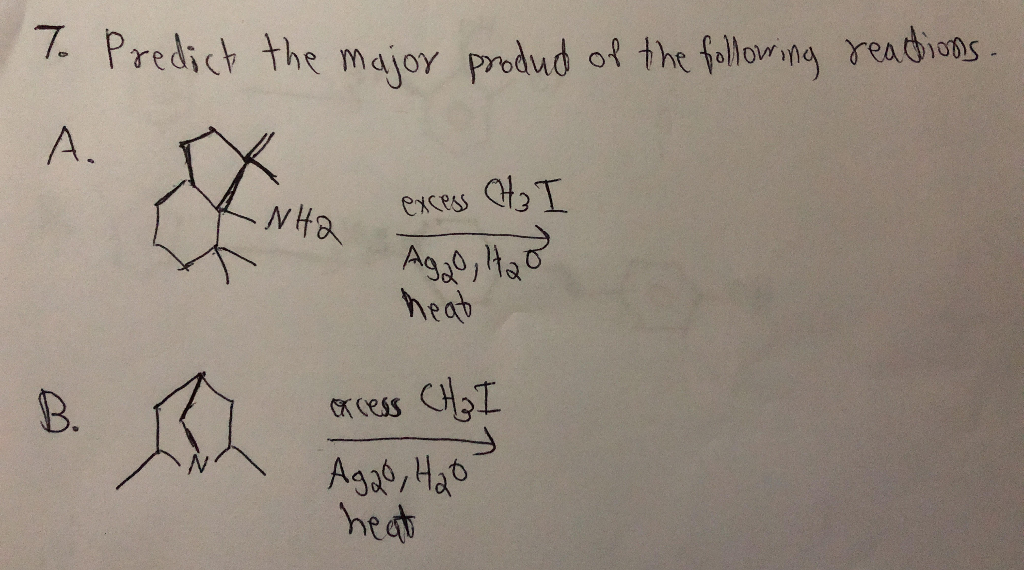 7. Predict the major product of the following reactions.
A.
NH2
excess CH3I
Ag2O, H2O
heat
B.
N
excess CH3I
Ag2O, H2O
heat